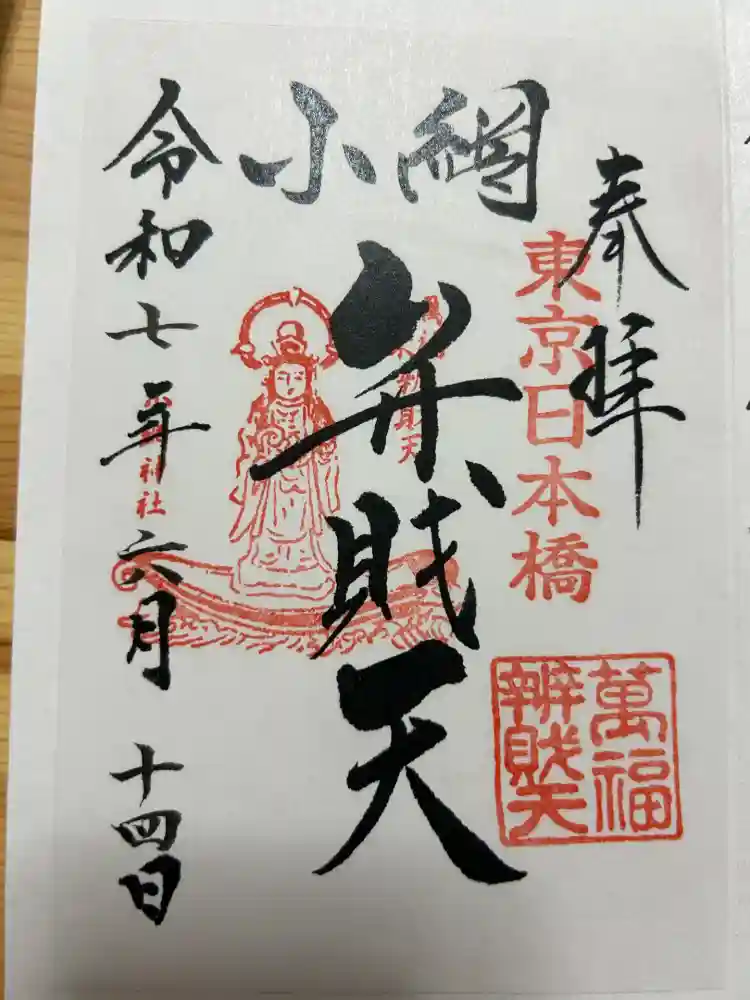 奉拝
東京日本橋
萬福
辨財天
小網
弁財天
財天
令和七年六月十四日
神社